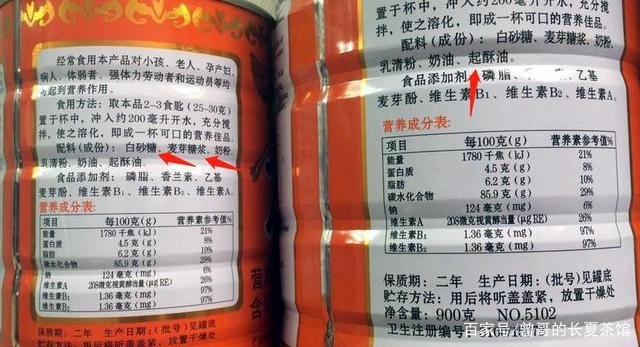 经常食用本产品对小孩、老人、孕产妇、
病人、体弱者、强体力劳动者和运动员等均
起到营养作用。
食用方法：取本品2-3食匙(25-30克)
置于杯中，冲入约200毫升开水，充分搅
拌，使之溶化，即成一杯可口的营养佳品。
配料(成份)：白砂糖、麦芽糖浆、奶粉、
乳清粉、奶油、起酥油。
食品添加剂：磷脂、香兰素、乙基
麦芽酚、维生素B₁、维生素B₂、维生素A。
营养成分表:
项目 每100克(g) 营养素参考值%
能量 1780千焦(kJ) 21%
蛋白质 4.5克(g) 8%
脂肪 6.2克(g) 10%
碳水化合物 85.9克(g) 29%
钠 124毫克(mg) 6%
维生素A 208微克视黄醇当量(μgRE) 26%
维生素B₁ 1.36毫克(mg) 97%
维生素B₂ 1.36毫克(mg) 97%
保质期：二年 生产日期：(批号)见罐底
贮存方法：用后将听盖盖紧，放置干燥处
营
含
置于杯中，冲入约200毫升开水，充分
拌，使之溶化，即成一杯可口的营养佳品。
配料(成份)：白砂糖、麦芽糖浆、奶粉、
乳清粉、奶油、起酥油。
食品添加剂 磷脂、 素、乙基
麦芽酚、维生素B₁、维生素B₂、维生素A。
营养成分表:
项目 每100克(g) 营养素参考值%
能量 1780千焦(kJ) 21%
蛋白质 4.5克(g) 8%
脂肪 6.2克(g) 10%
碳水化合物 85.9克(g) 29%
钠 124毫克(mg) 6%
维生素A 208微克视黄醇当量(μgRE) 26%
维生素B₁ 1.36毫克(mg) 97%
维生素B₂ 1.36毫克(mg) 97%
保质期：二年 生产日期：(批号)见罐底
贮存方法：用后将听盖盖紧，放置干燥处
净含量：900克 NO.5102
卫生注册编号
百家号/曾哥的长夏茶馆